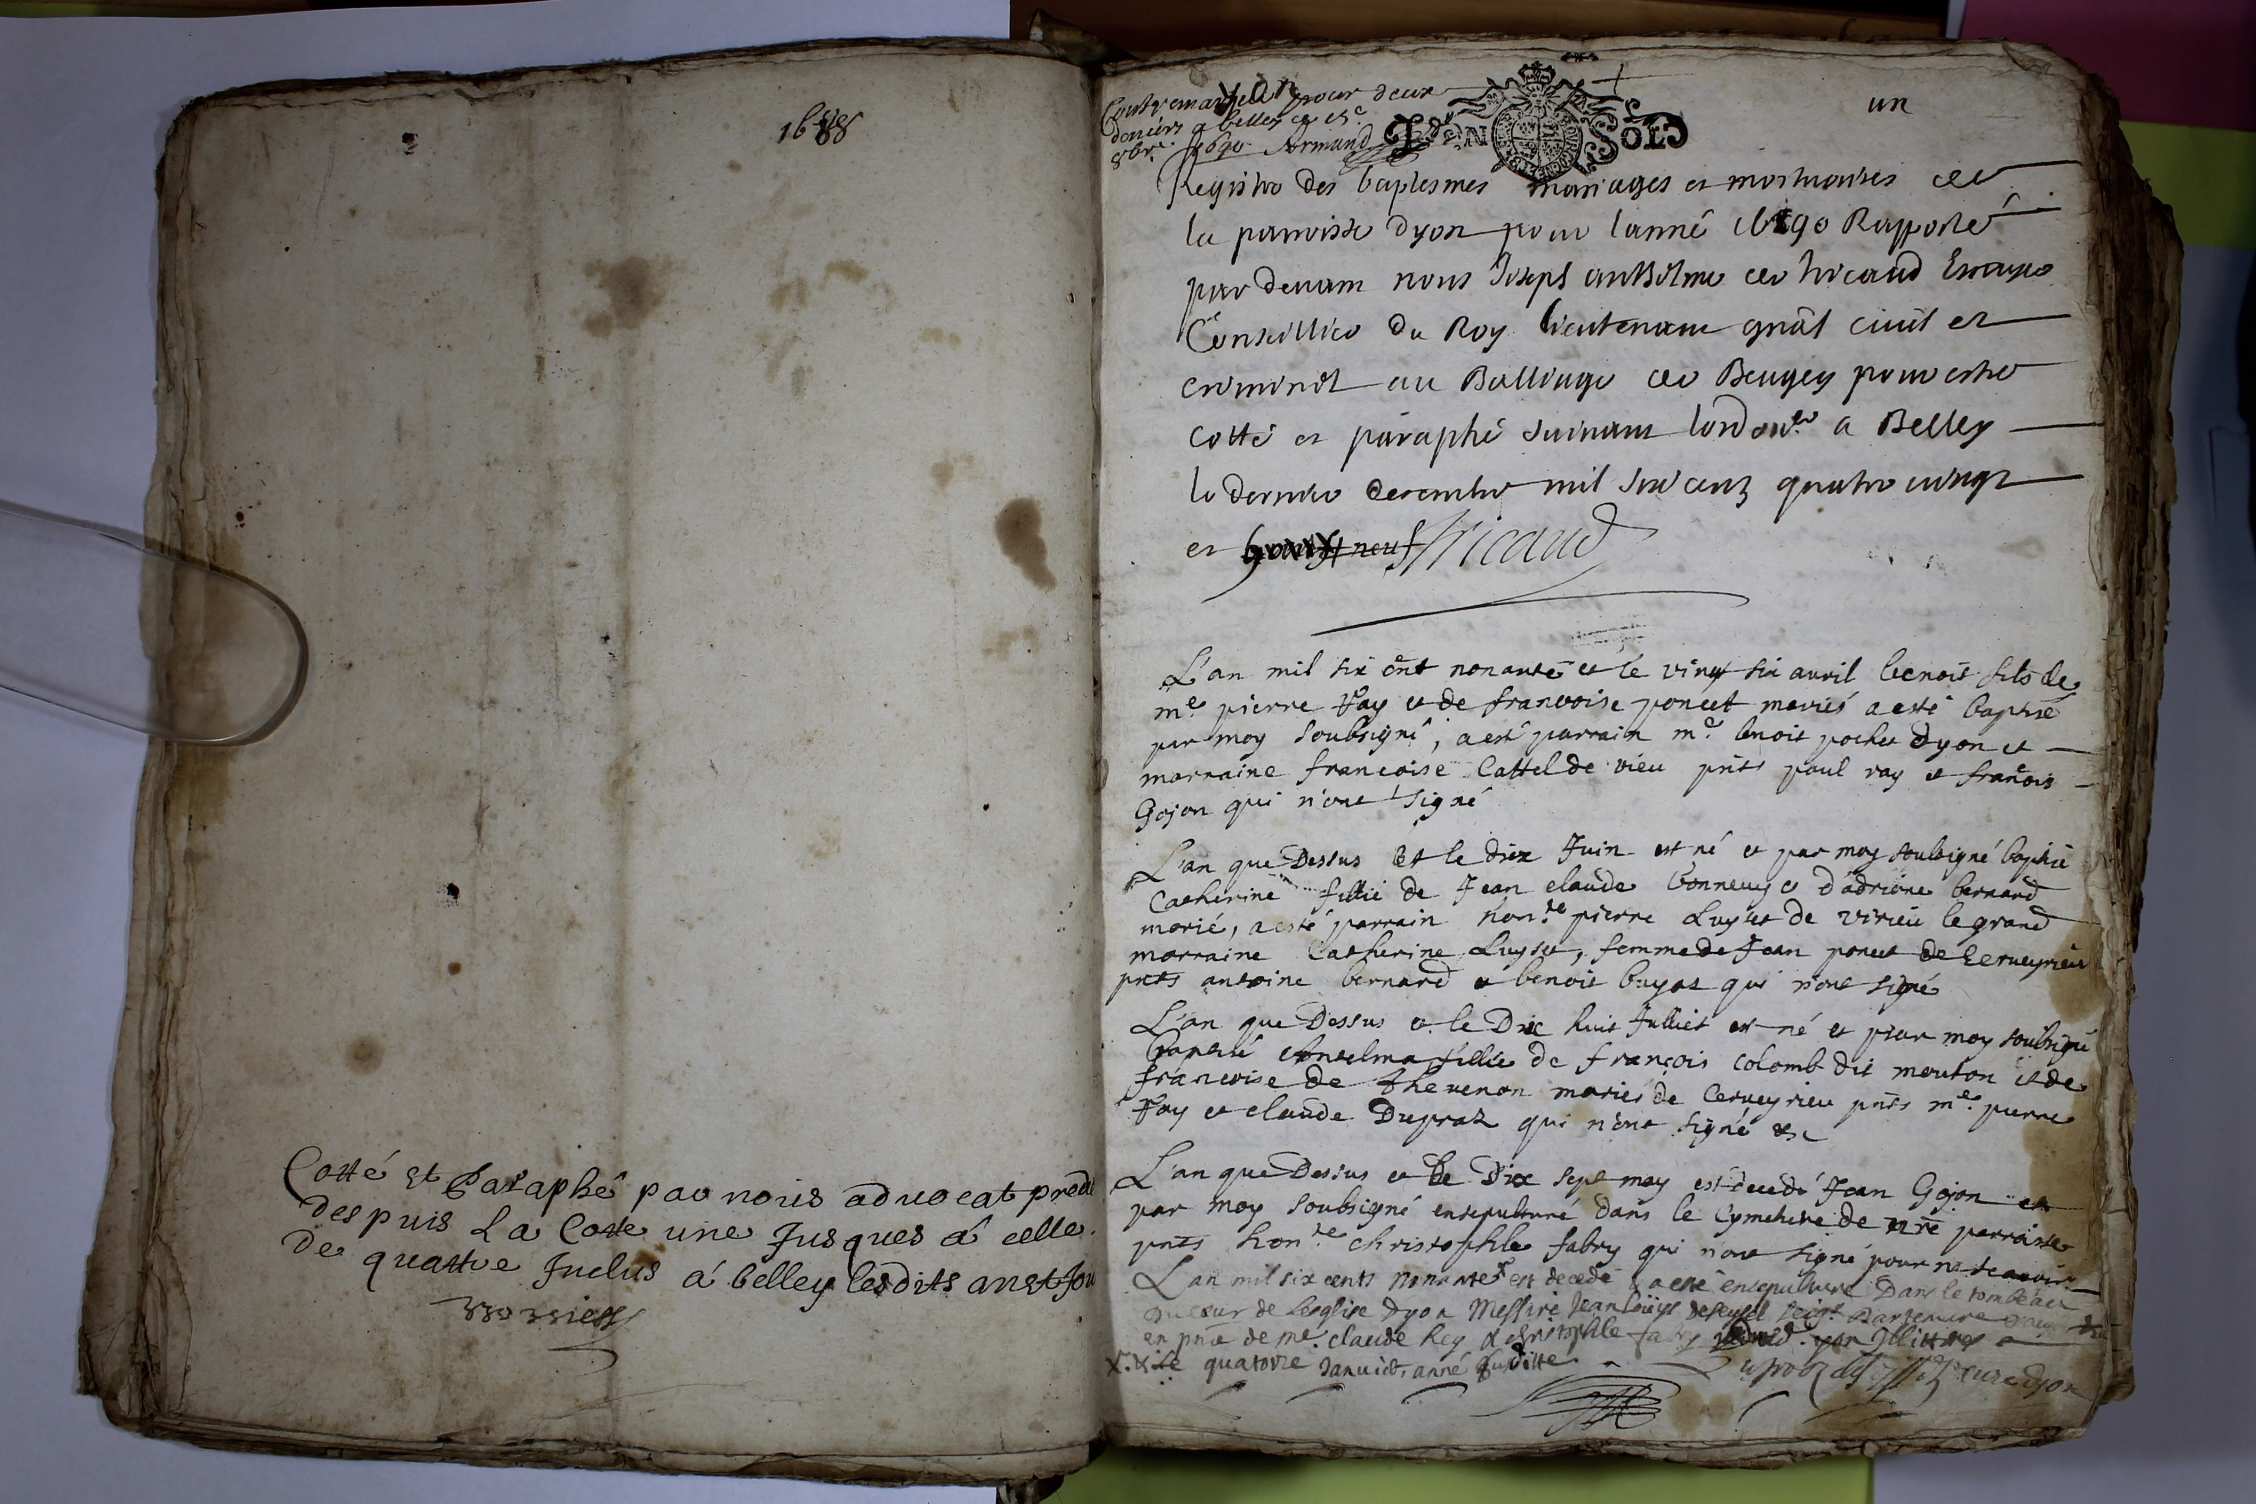 1688
Cotté et Paraphé par nous advocat
despuis La Cotte une Jusques á celle
de quattre Inclus á belley lesdits an et Jou
un
pour deux
deniers a belley ce
8bre 1690 Armand
SOLS
Registre des baptesmes mariages et mortuaires de
la parroisse dyon pour lanné 1690 Rapporté
par devant nous Joseph anthelme de tricaud Escuyer
Conseillier du Roy lieutenant gnâl civil et
criminel au Balliage de Beugey pour estre
cotté et paraphé suivant lordonce a Belley
le dernier decembre mil six centz quatre vingt
et neuf Tricaud
L'an mil six cent nonante et le vingt six avril benoit fils de
me pierre Fay et de francoise poncet mariés a esté baptisé
par moy soubsigné, a esté parrain me benoit pochet dyon et
marraine francoise Cattel de vieu pnts paul ray et francois
Gojon qui n'ont signé
L'an que Dessus et le dix Juin est né et par moy soubsigné baptisé
Catherine fillie de Jean claude bonneuy et d'adriane bernard
marié, a esté parrain honble pierre Luyset de virieu le grand
marraine Catherine Luyset, femme de Jean poncet de Cerveyrieu
pnts antoine bernard et benoit buyat qui n'ont signé
L'an que Dessus et le Dix huit Julliet est né et par moy soubsigné
baptisé Antelma fillie de françois colomb dit mouton et de
francoise de thevenon mariés de Cerveyrieu pnts me pierre
Fay et claude Dupraz qui n'ont signé &c
L'an que Dessus et le Dix sept may est decedé Jean Gojon et
par moy soubsigné ensepulturé dans le Cymetiere de nre parroisse
pnts honble christophle fabry qui n'ont signé pour ne scavoir
L'an mil six cents nonante est decedé & a esté ensepulturé Dans le tombeau
du cœur de lesglise Dyon Messire Jean louys deseyssel seigr
en pnce de me claude Rey & christophle fabry
le quatorze Janvier anné susditte
curé dyon